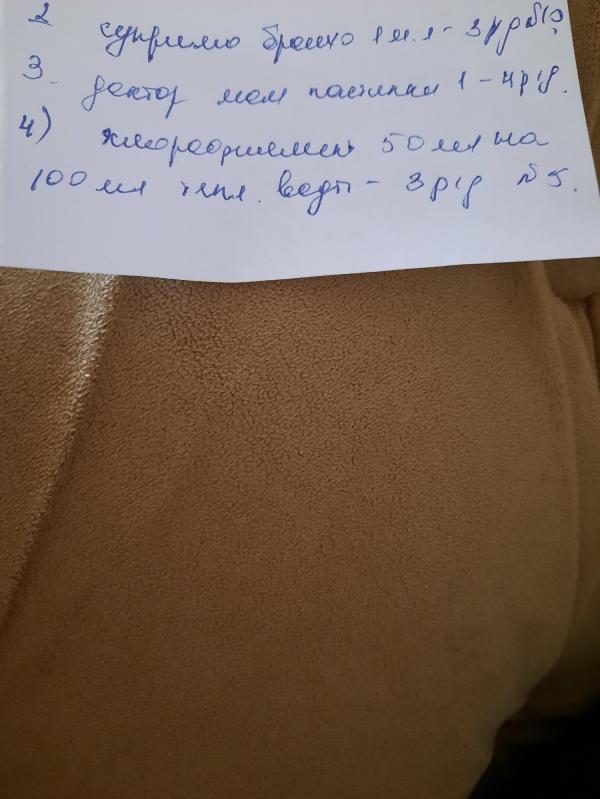 2 супримо бронхо 1 м.л - 3 р/д №10
3. доктор мом пастилки 1 - 4 р/д.
4) хлорофиллипт 50 мл на
100 мл тепл. воды - 3 р/д №5.